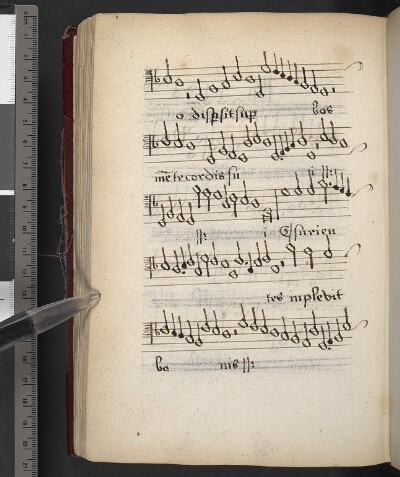 o dispsitsup bos
mēte cordis sii
i Esurien
tes inplebit
bo nis